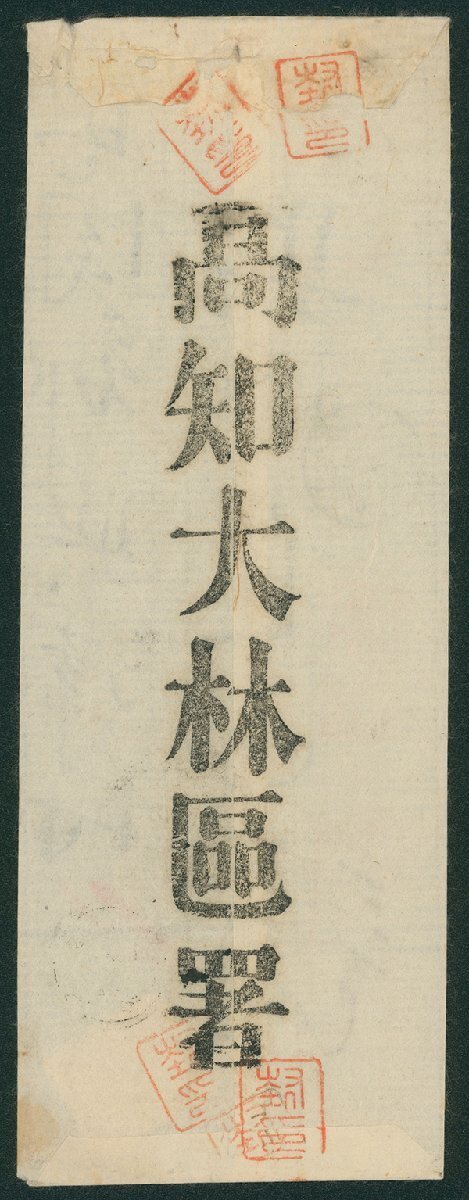 高知大林區署